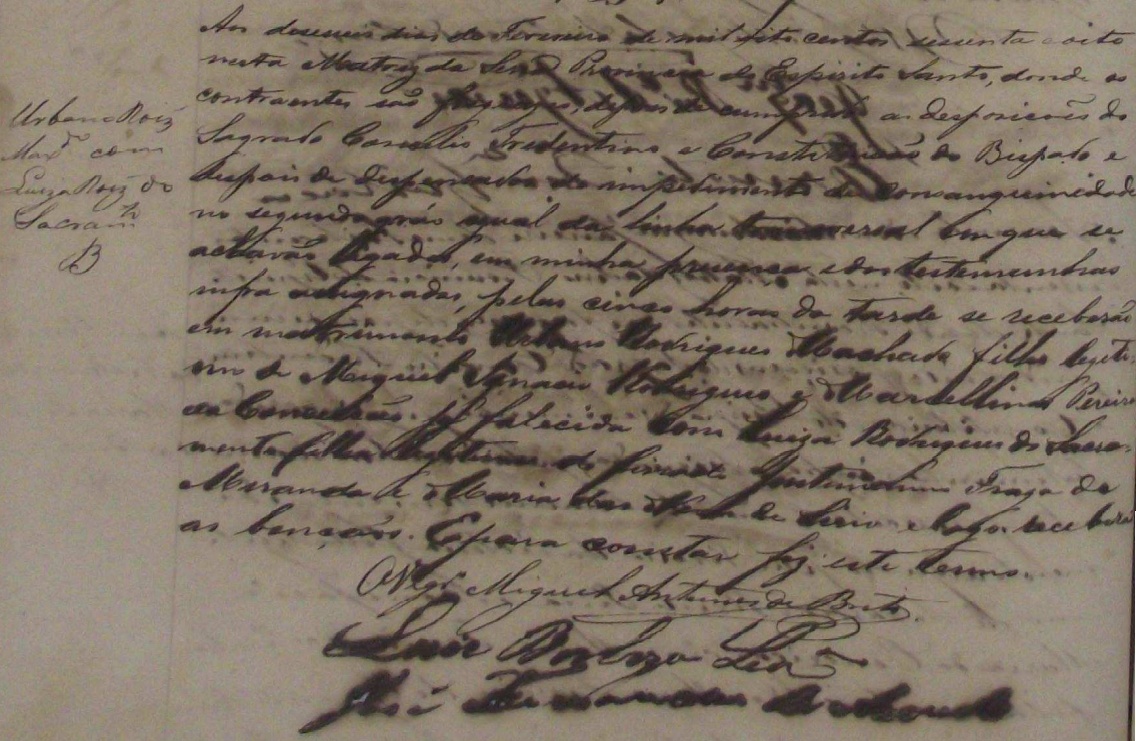 Urbano Roiz
Max.º com
Luiza Roiz do
Sacram.to
B
Aos deseseis dias de Fevereiro de mil oito centos sesenta e oito
nesta Matriz da Serra Provincia do Espirito Santo, donde os
contraentes são freguezes, depois de cumprido as desposicões do
Sagrado Concilio Tredentino e Constituicão do Bispado e
despois de despensados do impedimento de consanguinidade
no segundo grao igual da linha transversal em que se
achavão ligados, em minha presença e das testemunhas
infra assignadas, pelas cinco horas da tarde se receberão
em matrimonio Urbano Rodrigues Machado filho legiti-
mo de Miguel Ignacio Rodrigues e Marcellina Pereira
da Conceicão já falecida com Luiza Rodrigues do Sacra-
mento filha legitima de Justiniano Fraga de
Miranda e Maria das e logo receberão
as bençãos. E para constar fiz este termo.
O Vigr.º Miguel Antunes de Brito
Luiz Barboza
José